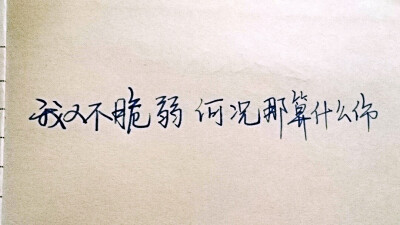 我又不脆弱 何况那算什么伤